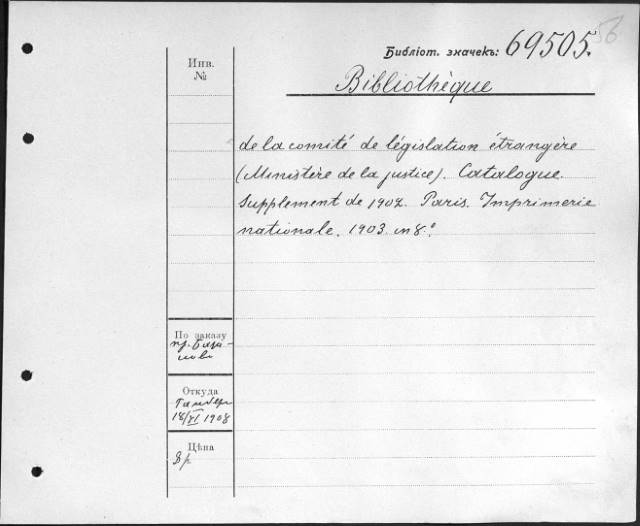 56
Библіот. значекъ: 69505.
Инв.
№
Bibliothèque
de la comité de législation étrangère
(Ministère de la justice). Catalogue.
Supplement de 1902. Paris. Imprimerie
nationale. 1903. in 8.°
По заказу
пр.
Откуда
18/XI 1908
Цѣна
р